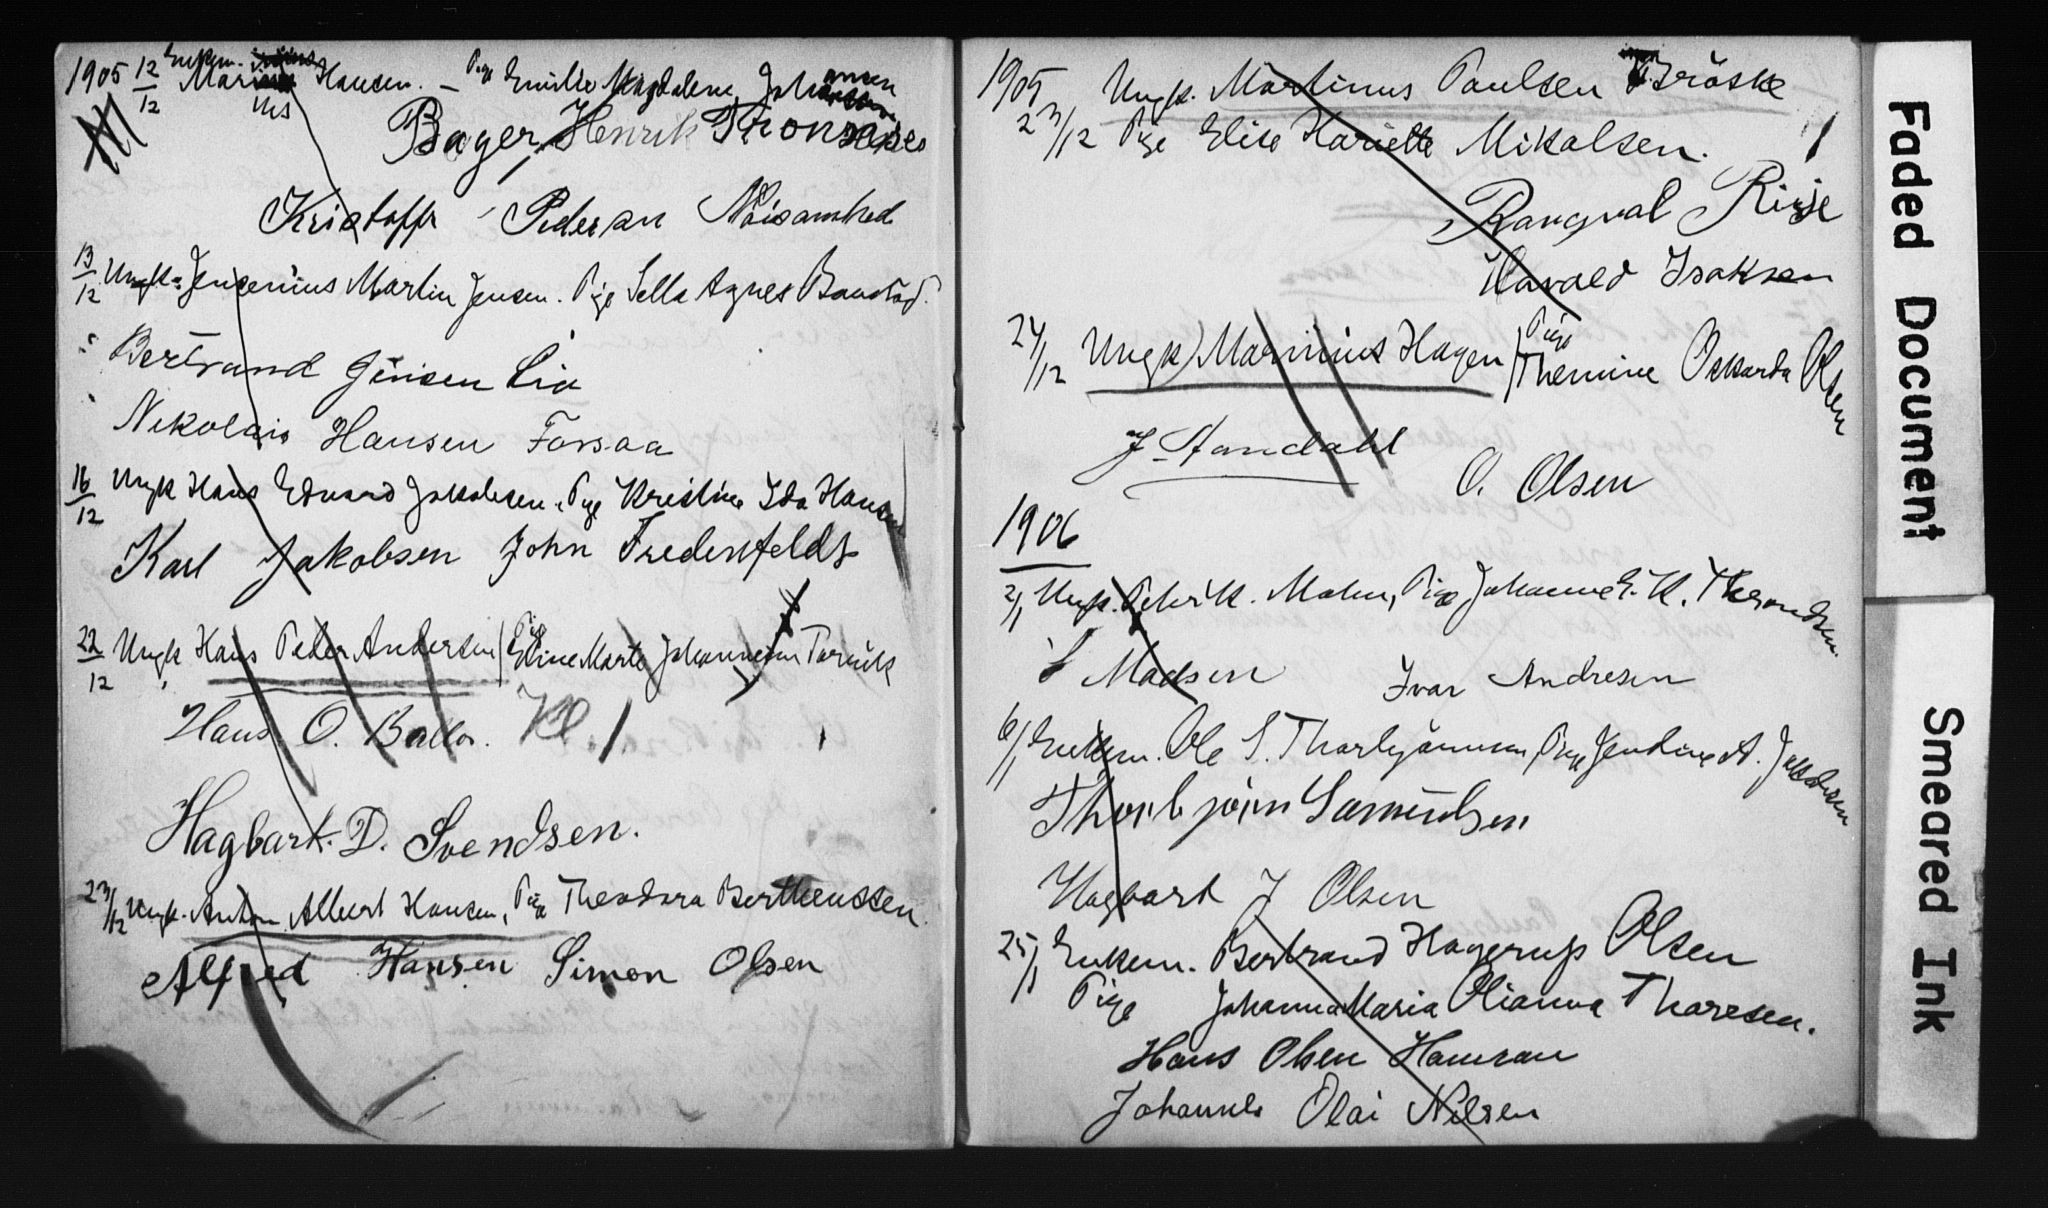 1905 12/12 Enkem. Marius Hansen. – Pige Emilie Magdalene Johansen
Bager Henrik Thomassen
Kristoffr Pedersen
13/12 Ungk. Jensenius Martin Jensen. Pige Sella Agnes Baustad.
Bertrand Jensen Lia
Nikolai Hansen Forsaa
16/12 Ungk Hans Edvard Jakobsen. Pige Kristine Ida Hansen
Karl Jakobsen John Fredenfeldt
22/12 Ungk Hans Peder Andersen / Pige Eline Marte Johannesen
Hans O. Ballo.
Hagbart. D. Svendsen.
23/12 Ungk. Anton Albert Hansen, Pige Theodora Bertheussen.
Alfred Hansen Simon Olsen
1905 Ungk. Martinus Paulsen
23/12 Pige Elise Hariette Mikalsen.
Rangval Risje
Harald Isaksen
24/12 Ungk / Marinius Hagen / Pige Themine Oskarda Olsen
J. Aandahl
O. Olsen
1906
2/1 Ungk. Petrik. Malm, Pige Johanne E. K. Therondsen.
Madsen Ivar Andresen
6/1 Enkem. Ole S. Thorbjörnsen, Pige Jentine A. Jakobsen
Thorbjörn Samuelsen
Hagbart J Olsen
25/1 Enkem. Bertrand Hagerup Olsen
Pige Johanna Maria Olianna Thoresen.
Hans Olsen Hamran
Johannes Olai Nilsen
Faded Document
Smeared Ink